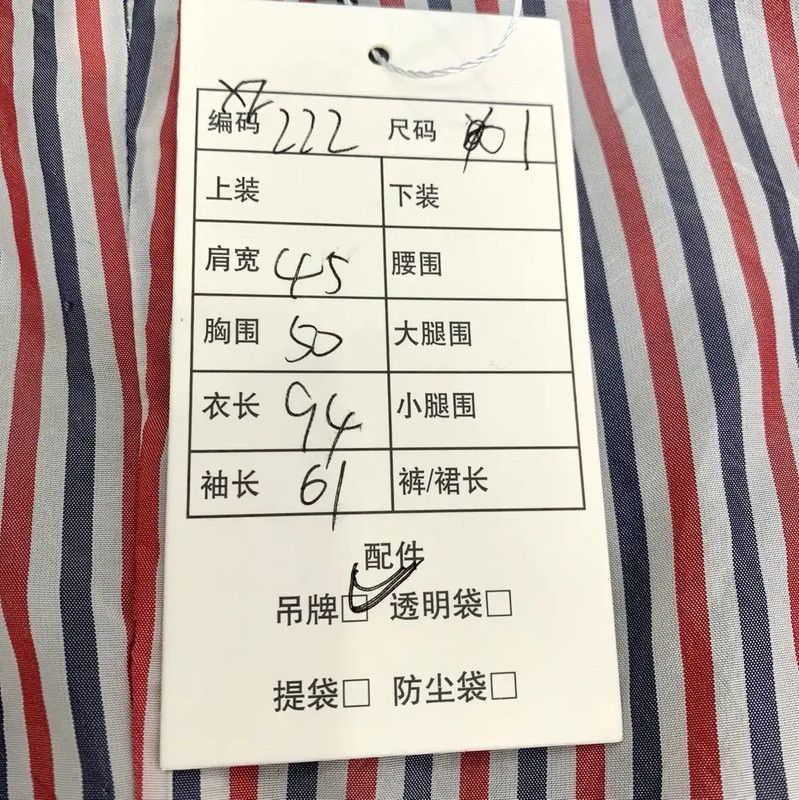 编码 XL222 尺码 1
上装 下装
肩宽 45 腰围
胸围 50 大腿围
衣长 94 小腿围
袖长 61 裤/裙长
配件
吊牌 透明袋
提袋 防尘袋